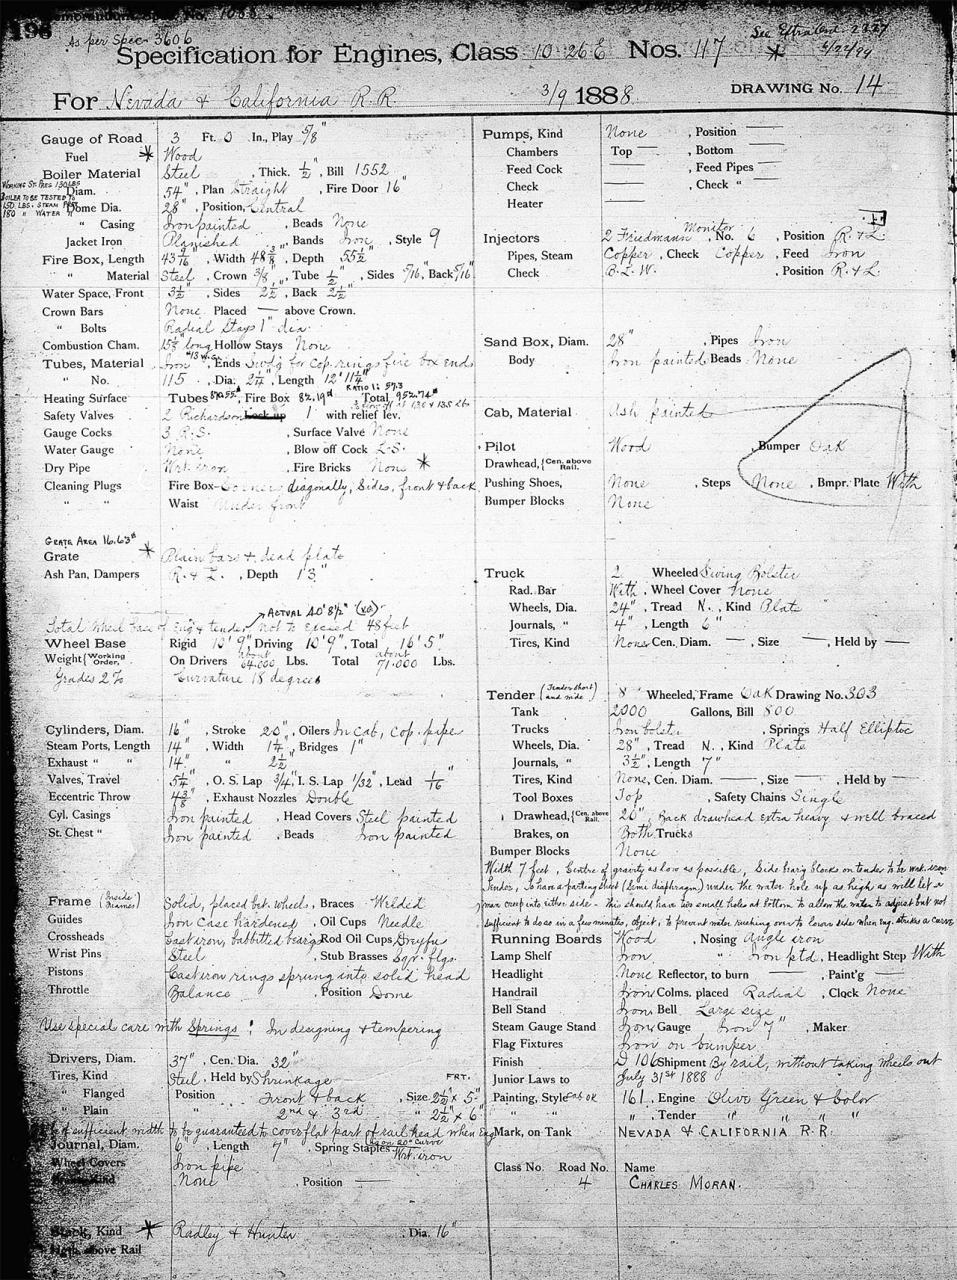 198
Memorandum Spec. No. 1088
As per Spec 3606
See Extra Ord. 2327
6/22/99
Specification for Engines, Class 10 26 E Nos. 117 *
For Nevada & California R.R. 3/9 1888. DRAWING No. 14
Gauge of Road 3 Ft. 0 In., Play 5/8"
Fuel * Wood
Boiler Material Steel , Thick. ½" , Bill 1552
WORKING ST. PRES 130 LBS
BOILER TO BE TESTED TO
150 LBS. STEAM PRES
180 " WATER "
Diam. 54" , Plan Straight , Fire Door 16"
Dome Dia. 28" , Position, Central
" Casing Iron painted , Beads None
Jacket Iron Planished , Bands Iron , Style 9
Fire Box, Length 43 9/16" , Width 48 3/8" , Depth 55½"
" Material Steel , Crown 3/8" , Tube ½" , Sides 5/16" , Back 5/16"
Water Space, Front 3½" , Sides 2½" , Back 2½"
Crown Bars None , Placed — above Crown.
" Bolts Radial Stays 1" dia.
Combustion Cham. long , Hollow Stays None
Tubes, Material Iron #13 W.G. , Ends Swdg for cop. rings fire box ends
" No. 115 , Dia. 2¼" , Length 12' 11¼"
RATIO 1: 57.3
Heating Surface Tubes 870.55 , Fire Box 82.19 Total 952.74
Safety Valves 2 Richardson Lock up 1 with relief lev.
to blow off at 130 & 135 lbs
Gauge Cocks 3 R.S. , Surface Valve None
Water Gauge None , Blow off Cock L.S.
Dry Pipe Wrt. iron , Fire Bricks None *
Cleaning Plugs Fire Box Corners diagonally, Sides, front & back
" " Waist Under front
GRATE AREA 16.63
Grate * Plain bars & dead plate
Ash Pan, Dampers R. & L. , Depth 1'3"
ACTUAL 40' 8½"
Total Wheel base of Eng & tender not to exceed 48 feet
Wheel Base Rigid 10' 9" , Driving 10' 9" , Total 16' 5"
Weight {Working Order, On Drivers about 64.000 Lbs. Total about 71.000 Lbs.
Grades 2% Curvature 18 degrees
Cylinders, Diam. 16" , Stroke 20" , Oilers In cab, cop. pipe
Steam Ports, Length 14" , Width 1¼" , Bridges 1"
Exhaust " " 14" " 2½"
Valves, Travel 5¼" , O. S. Lap 3/4" , I. S. Lap 1/32" , Lead 1/16"
Eccentric Throw 4 3/8" , Exhaust Nozzles Double
Cyl. Casings Iron painted , Head Covers Steel painted
St. Chest " Iron painted , Beads Iron painted
Frame (Inside frames) Solid, placed bet. wheels , Braces Welded
Guides Iron Case hardened , Oil Cups Needle
Crossheads Cast iron, babbitted bearings Rod Oil Cups Dreyfus
Wrist Pins Steel , Stub Brasses Sqr. flgs.
Pistons Cast iron rings sprung into solid head
Throttle Balance , Position Dome
Use special care with Springs : In designing & tempering
Drivers, Diam. 37" , Cen. Dia. 32"
Tires, Kind Steel , Held by Shrinkage FRT.
" Flanged Position Front & back , Size 2½" x 5"
" Plain " 2nd & 3rd " 2½" x 6"
of sufficient width to be guaranteed to cover flat part of rail head when Eng.
is on 20° curve
Journal, Diam. 6" , Length 7" , Spring Staples Wrt. iron
Wheel Covers Iron pipe
Kind None , Position —
Stack, Kind * Radley & Hunter , Dia. 16"
Hght. above Rail
Pumps, Kind None , Position —
Chambers Top — , Bottom —
Feed Cock — , Feed Pipes —
Check — , Check " —
Heater —
Injectors 2 Friedmann Monitor , No. 6 , Position R. & L.
Pipes, Steam Copper , Check Copper , Feed Iron
Check B. L. W. , Position R. & L.
Sand Box, Diam. 28" , Pipes Iron
Body Iron painted Beads None
Cab, Material Ash painted
Pilot Wood , Bumper Oak
Drawhead, {Cen. above Rail.
Pushing Shoes, None , Steps None , Bmpr. Plate With
Bumper Blocks None
Truck 2 Wheeled Swing Bolster
Rad. Bar With , Wheel Cover None
Wheels, Dia. 24" , Tread N. , Kind Plate
Journals, " 4" , Length 6"
Tires, Kind None Cen. Diam. — , Size — , Held by —
Tender (Tender short and wide) 8 Wheeled, Frame Oak Drawing No. 303
Tank 2000 Gallons, Bill 800
Trucks Iron bolster , Springs Half Elliptic
Wheels, Dia. 28" , Tread N. , Kind Plate
Journals, " 3½" , Length 7"
Tires, Kind None, Cen. Diam. — , Size — , Held by —
Tool Boxes Top , Safety Chains Single
Drawhead, {Cen. above Rail. 20" , Back drawhead extra heavy & well braced
Brakes, on Both Trucks
Bumper Blocks None
Width 7 feet , Centre of gravity as low as possible , Side bearg blocks on tender to be wrt. iron
Tender, To have a parting sheet (semi diaphragm) under the water hole up as high as will let a
man creep into either side - this should have two small holes at bottom to allow the water to adjust but not
sufficient to do so in a few minutes, object, to prevent water rushing over to lower side when eng. strikes a curve
Running Boards Wood , Nosing Angle iron
Lamp Shelf Iron " Iron ptd , Headlight Step With
Headlight None Reflector, to burn — , Paint'g —
Handrail Iron Colms. placed Radial , Clock None
Bell Stand Iron Bell Large size
Steam Gauge Stand Iron Gauge Iron 7" , Maker
Flag Fixtures Iron on bumper
Finish D 106 Shipment By rail, without taking wheels out
Junior Laws to July 31st 1888
Painting, Style 161 , Engine Olive Green & Color
" " " , Tender " " " "
Mark, on Tank NEVADA & CALIFORNIA R. R.
Class No. Road No. Name
4 CHARLES MORAN.